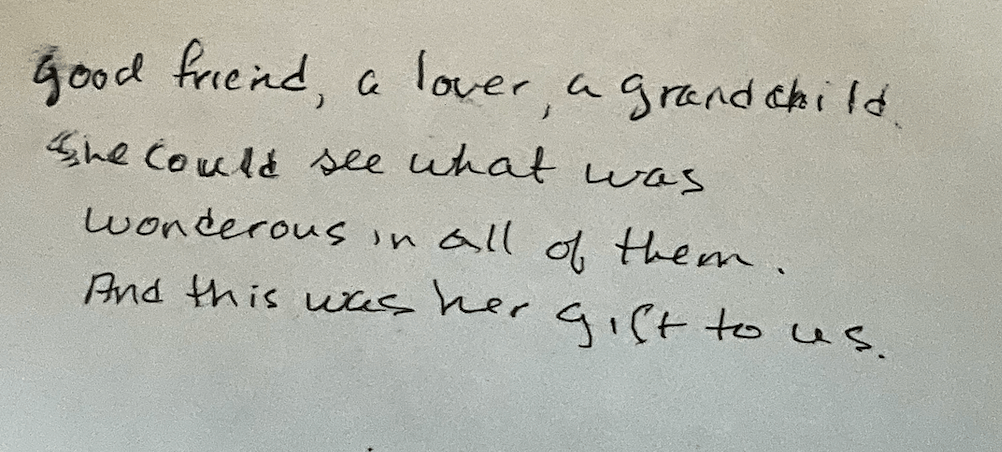 good friend, a lover, a grandchild.
She could see what was
wonderous in all of them.
And this was her gift to us.